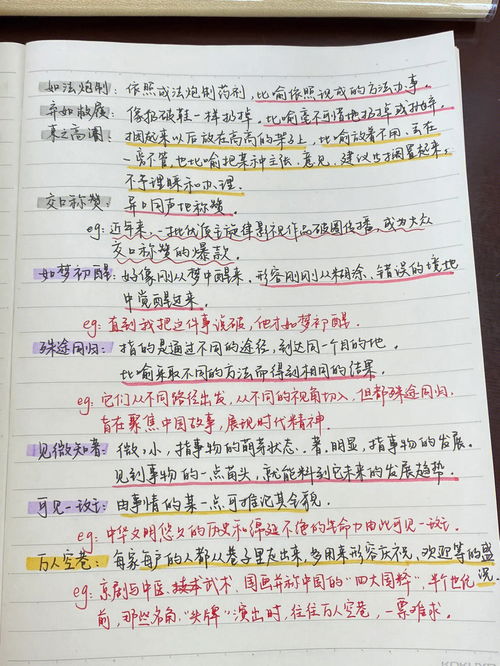 如法炮制：依照成法炮制药剂，比喻依照现成的方法办事。
弃如敝屣：像扔破鞋一样扔掉，比喻毫不可惜地扔掉或抛弃
束之高阁：捆起来以后放在高高的架子上，比喻放着不用，丢在
一旁不管，也比喻把某种主张、意见、建议等搁置起来，
不予理睬和办理。
交口称赞：异口同声地称赞。
eg：近年来，一批优秀主旋律影视作品破圈传播，成为大众
交口称赞的爆款。
如梦初醒：好像刚从梦中醒来，形容刚刚从糊涂、错误的境地
中觉醒过来。
eg：直到我把这件事说破，他才如梦初醒．
殊途同归：指的是通过不同的途径，到达同一个目的地．
比喻采取不同的方法而得到相同的结果．
eg：它们从不同路径出发，从不同的视角切入，但都殊途同归，
旨在聚焦中国故事，展现时代精神．
见微知著：微，小，指事物的萌芽状态．著，明显，指事物的发展．
见到事物的一点苗头，就能料到它未来的发展趋势．
可见一斑：由事情的某一点可推知其全貌．
eg：中华文明悠久的历史和绵延不绝的生命力由此可见一斑．
万人空巷：每家每户的人都从巷子里走出来，多用来形容庆祝，欢迎等的盛况．
eg：京剧与中医、武术、国画并称中国的“四大国粹”，半个世纪
前，那些名角“头牌”演出时，往往万人空巷，一票难求．
KOKUYO